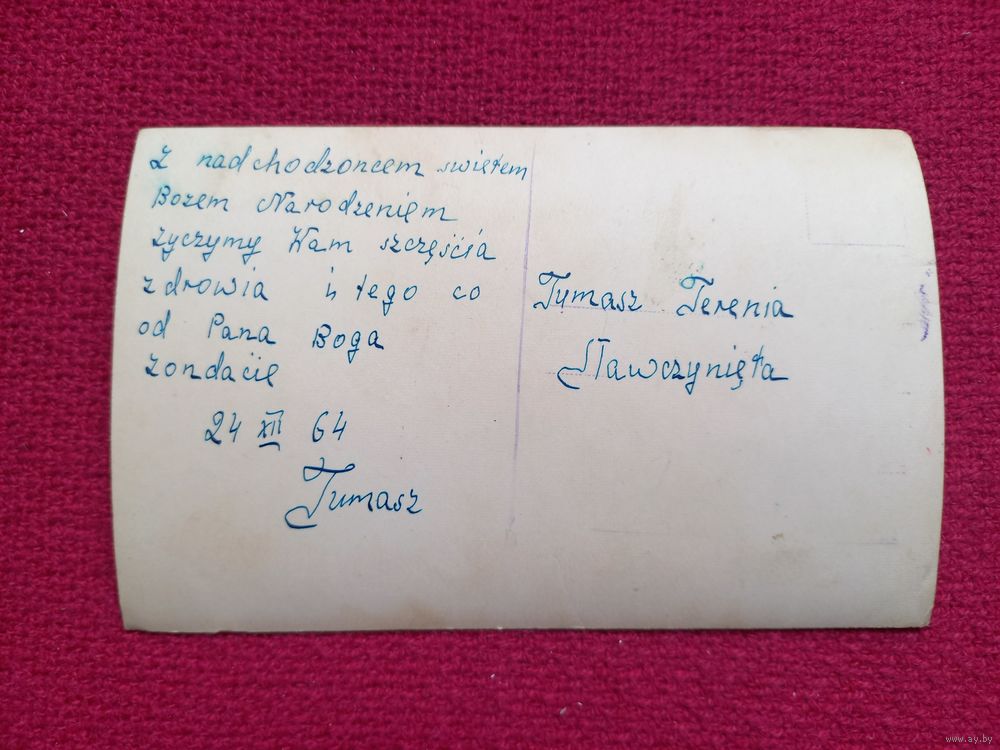 Z nadchodzoncem swiętem
Bozem Narodzenięm
życzymy Wam szczęścia
zdrowia i tego co
od Pana Boga
żondacię
24 XII 64
Tumasz
Tumasz Terenia
Sławczynięta
www.ay.by